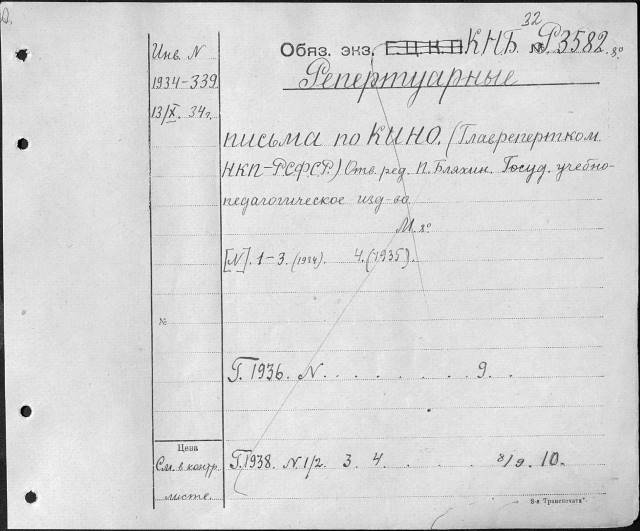 32
Обяз. экз. Г.Ц.К.П. КНБ № Р3582. 8º
Инв. N
1934-339
13/X. 34г.
Репертуарные
письма по КИНО. (Главрепертком
НКП-РСФСР.) Отв. ред. П. Бляхин. Госуд. учебно-
педагогическое изд-во
М. 8º
[N]. 1-3. (1934). 4. (1935).
№
Г. 1936. N . . . . . . . 9. .
Цена
См. в контр.
листе.
Г. 1938. N 1/2. 3. 4. . . . . 8/9. 10.
2-я Транспечать